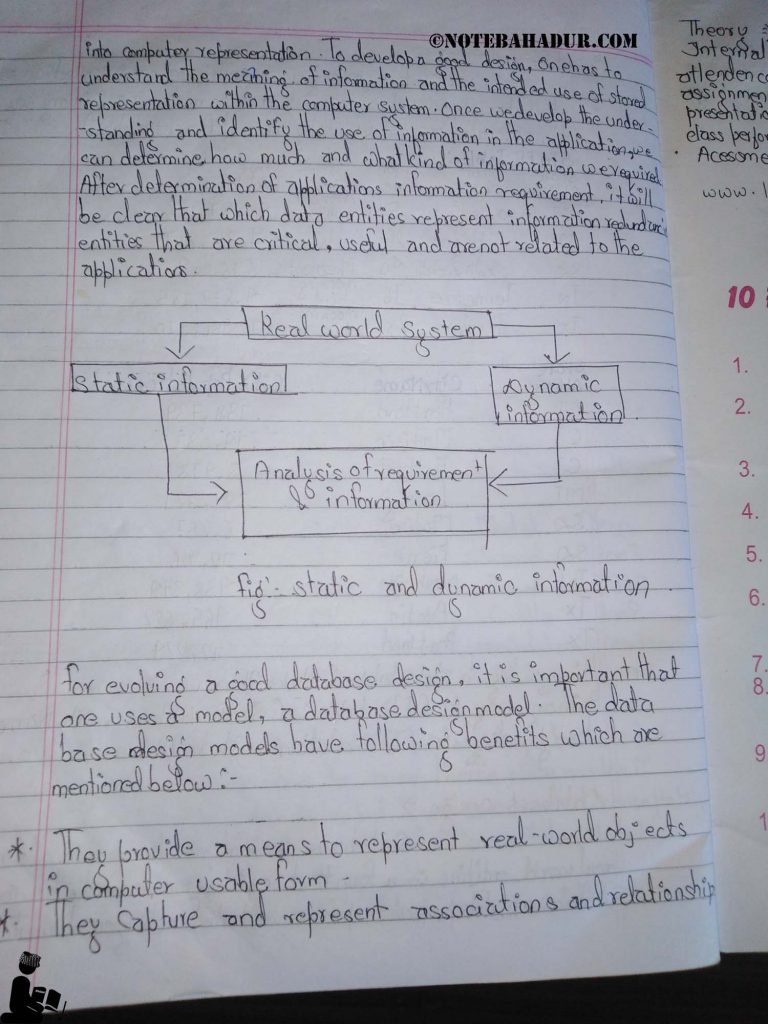 ©NOTEBAHADUR.COM
into computer representation. To develop a good design, one has to
understand the meaning of information and the intended use of stored
representation within the computer system. Once we develop the under-
-standing and identify the use of information in the application, we
can determine how much and what kind of information we required.
After determination of applications information requirement, it will
be clear that which data entities represent information
entities that are critical, useful and are not related to the
applications.
Real world system
static information
Dynamic
information
Analysis of requirement
& information
fig:- static and dynamic information.
for evolving a good database design, it is important that
one uses a model, a database design model. The data
base design models have following benefits which are
mentioned below:-
*. They provide a means to represent real-world objects
in computer usable form -
*. They Capture and represent associations and relationship
Theory
Internal
attendenc
assignmen
presentatio
class perfor
. Acessme
www.
10
1.
2.
3.
4.
5.
6.
7.
8.
9
1